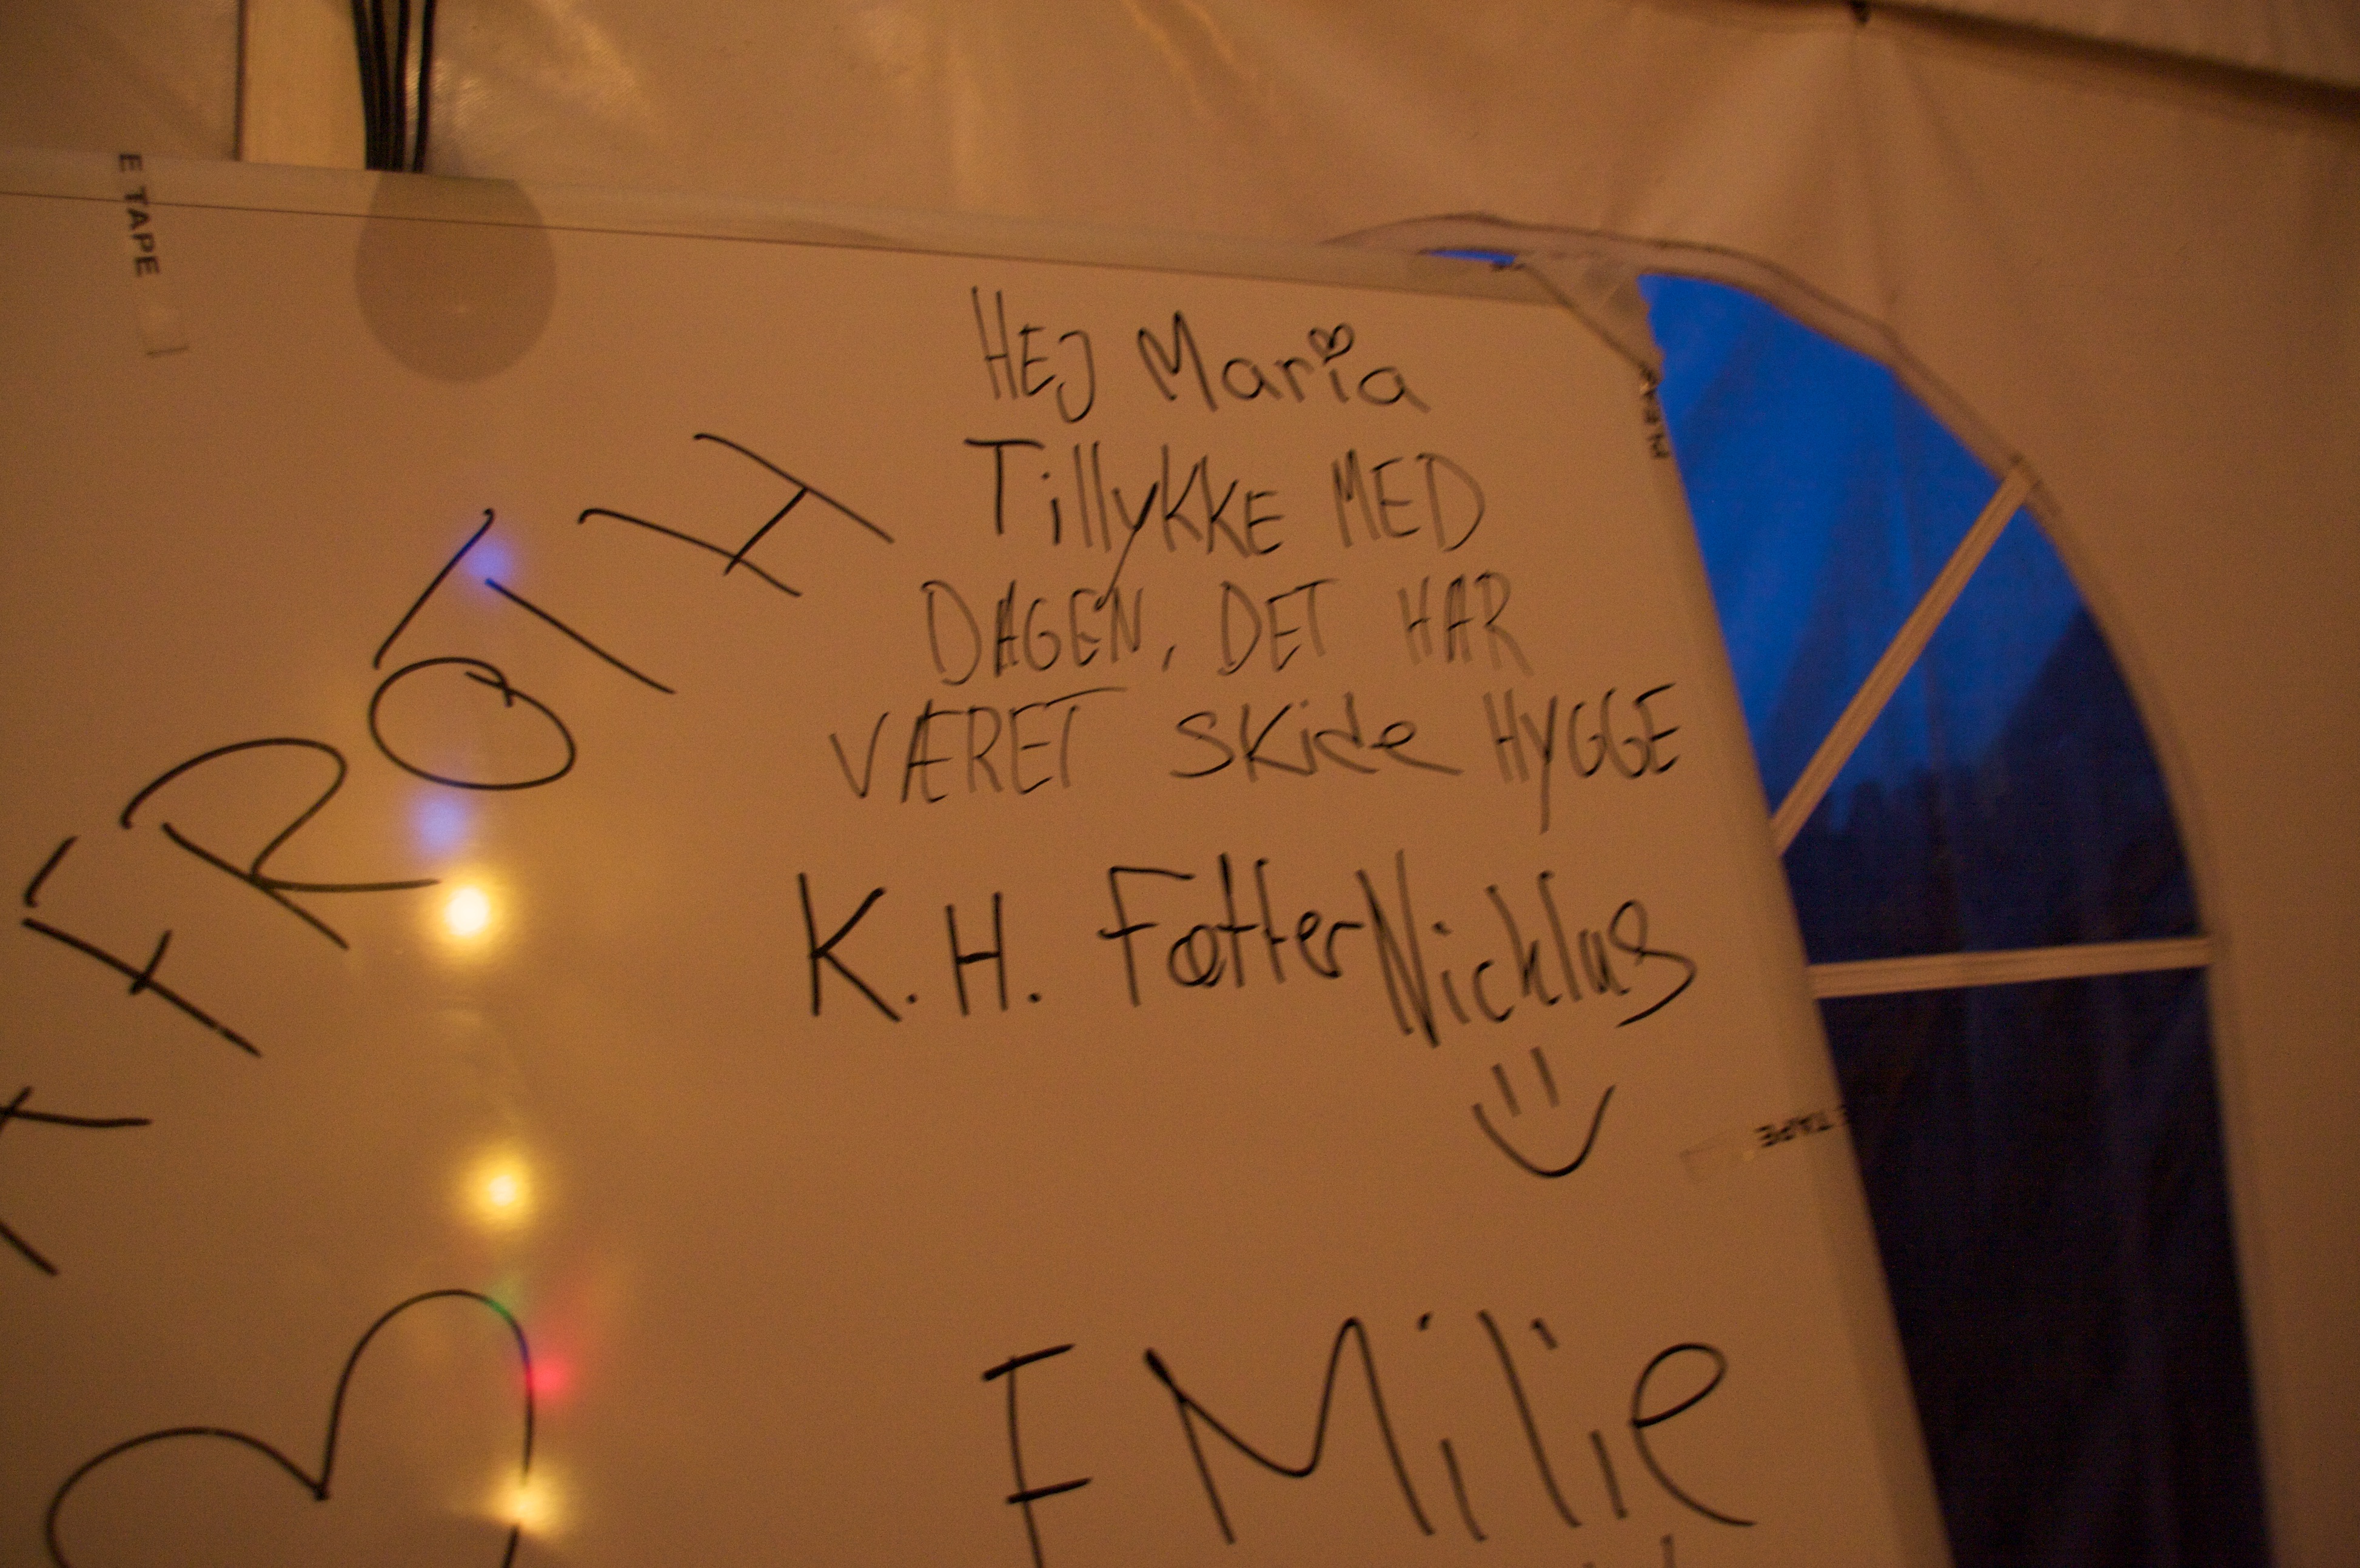 E TAPE
HEJ Maria
TillyKKE MED
DAGEN, DET HAR
VÆRET SKide HYGGE
K.H. Fætter Nicklas
E TAPE
EMilie